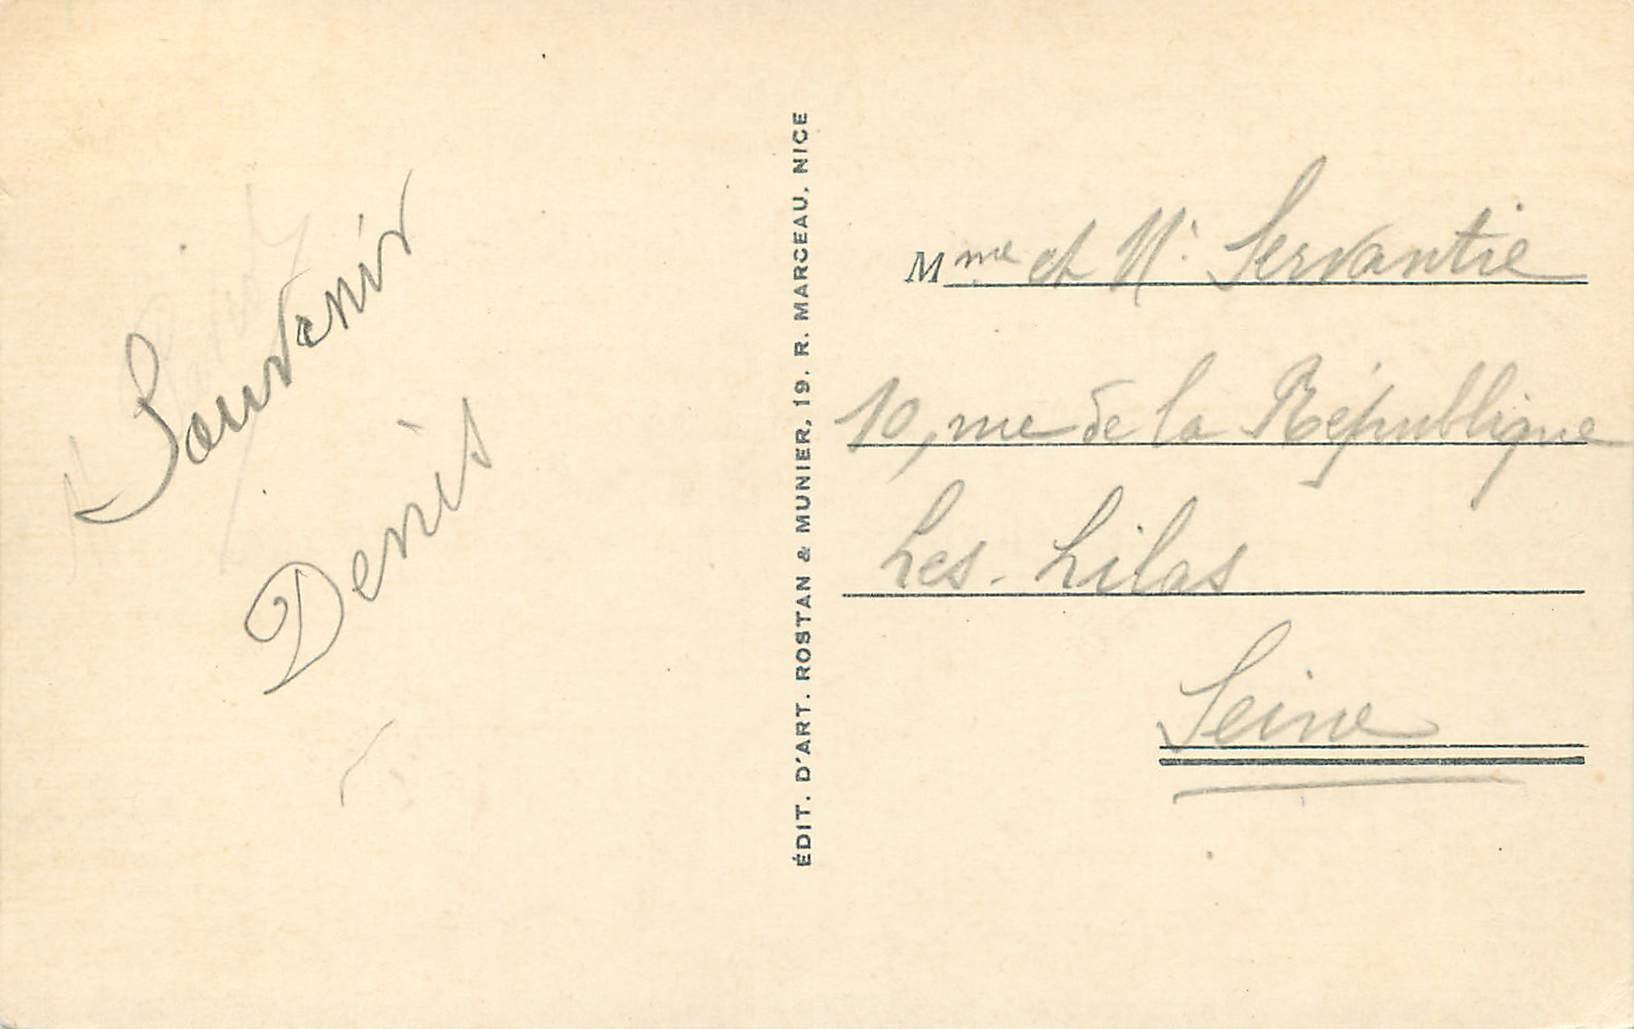 Souvenir
Denis
ÉDIT. D'ART. ROSTAN & MUNIER, 19. R. MARCEAU. NICE
Mme et M. Servantie
10, rue de la République
Les-Lilas
Seine